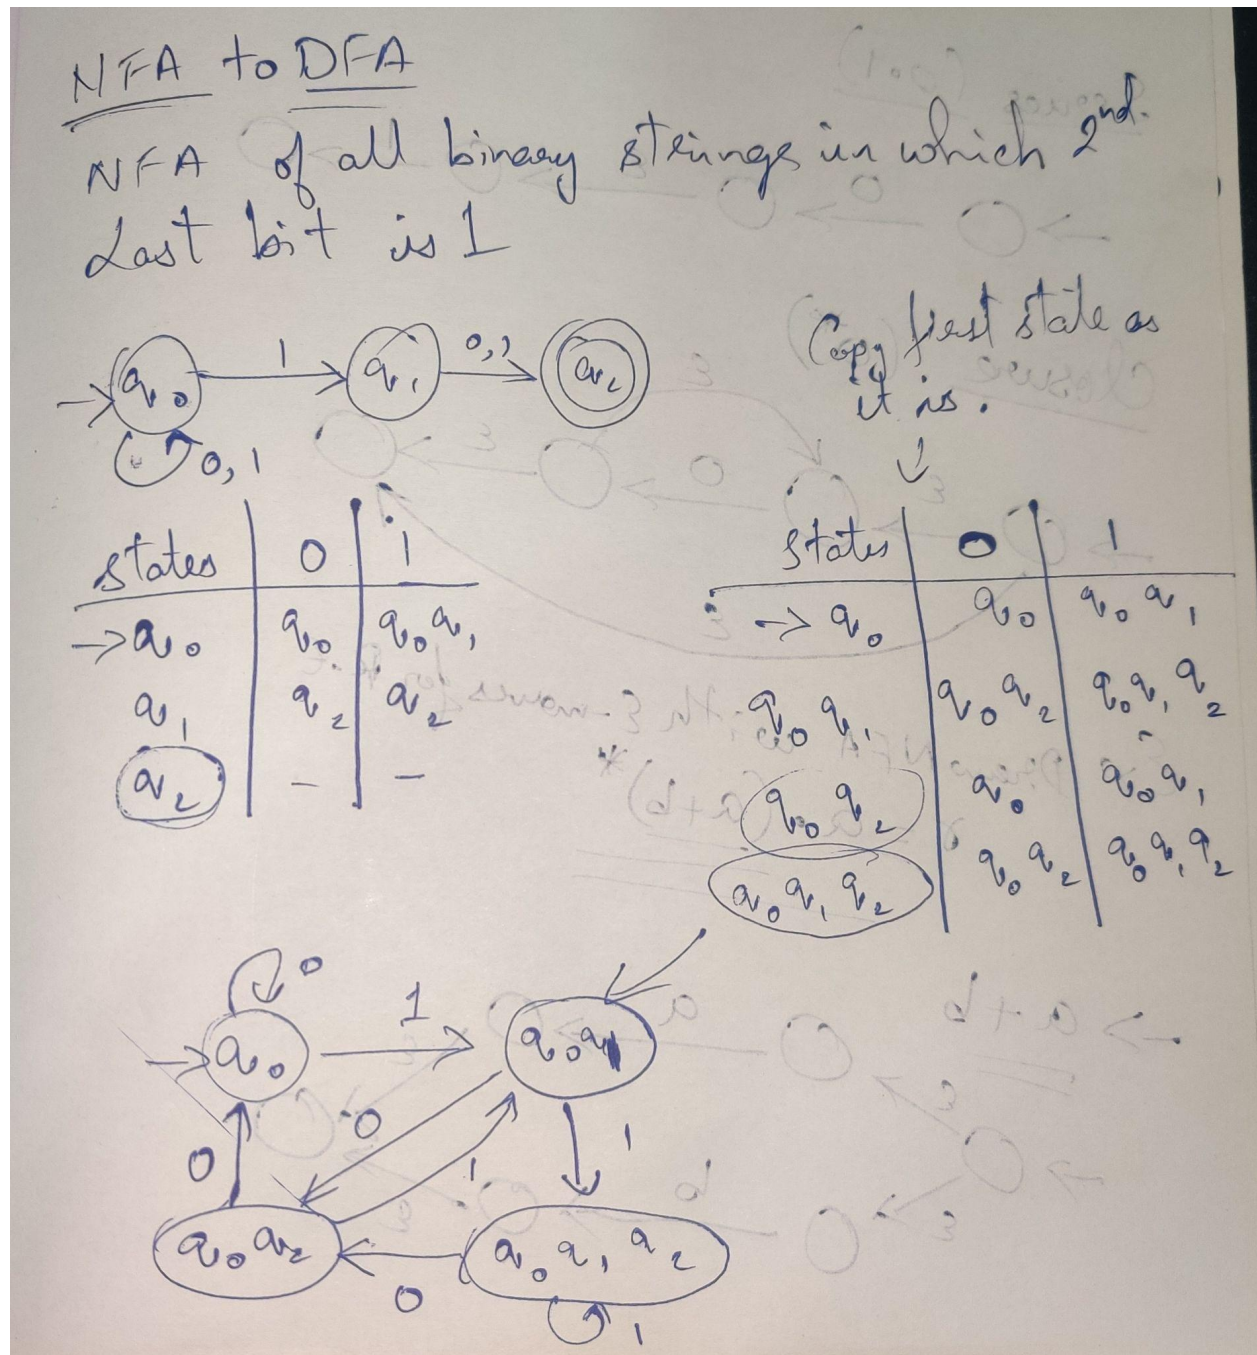 NFA to DFA
NFA of all binary strings in which 2nd.
Last bit is 1
Copy first state as
it is.
q0 1 q1 0,1 q2
0,1
states 0 1
→ q0 q0 q0q1
q1 q2 q2
q2 - -
states 0 1
→ q0 q0 q0 q1
q0 q1 q0 q2 q0 q1 q2
q0 q2 q0 q0 q1
q0 q1 q2 q0 q2 q0 q1 q2
0
q0 1 q0q1
0 0 1 1
q0 q2 0 q0 q1 q2
1